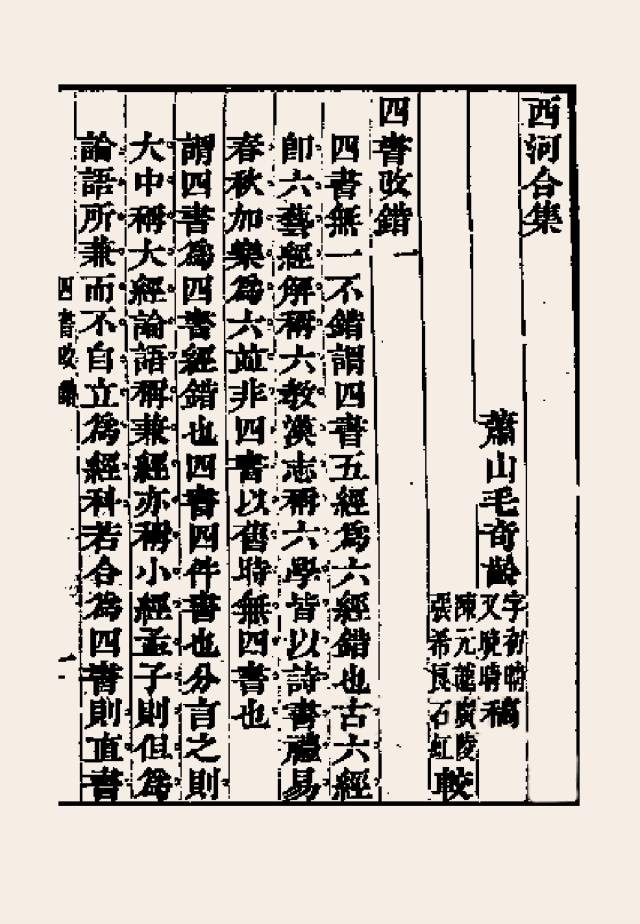 西河合集
蕭山毛奇齡字初晴又晚晴稿
陳元龍廣陵張希良石虹較
四書改錯一
四書無一不錯謂四書五經爲六經錯也古六經
卽六藝經解稱六敎漢志稱六學皆以詩書禮易
春秋加樂爲六並非四書以舊時無四書也
謂四書爲四書經錯也四書四件書也分言之則
大中稱大經論語稱兼經亦稱小經孟子則但爲
論語所兼而不自立爲經科若合爲四書則直書
四書改錯
一